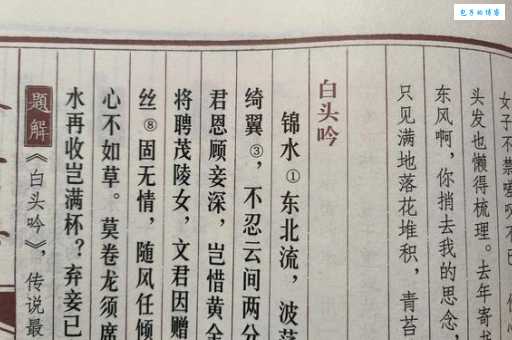 包子的博客
女子不禁嗟叹不已
头发也懒得梳理。去年寄
东风啊，你捎去我的思念，
只见满地落花堆积，青苔
白头吟
锦水①东北流，波荡
绮翼③，不忍云间两分
君恩顾妾深，岂惜黄金
将聘茂陵女，文君因赠
丝⑧固无情，随风任倾
心不如草。莫卷龙须席
水再收岂满杯？弃妾已
题解《白头吟》，传说最